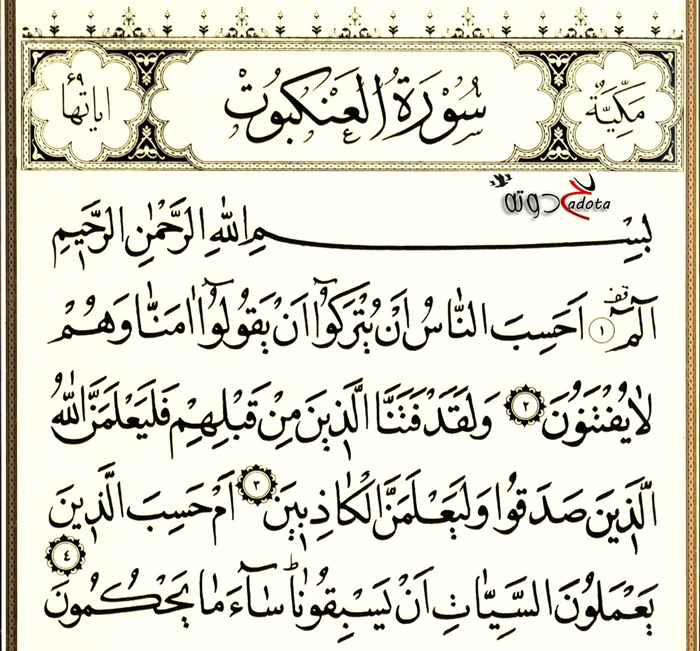 مَكِّيَّةٌ سُورَةُ الْعَنْكَبُوتِ اياتها ٦٩
حدوته adota
بِسْمِ اللهِ الرَّحْمٰنِ الرَّحٖيمِ
الٓمٓ ۚقف ١ اَحَسِبَ النَّاسُ اَنْ يُتْرَكُٓوا اَنْ يَقُولُٓوا اٰمَنَّا وَهُمْ
لَا يُفْتَنُونَ ٢ وَلَقَدْ فَتَنَّا الَّذٖينَ مِنْ قَبْلِهِمْ فَلَيَعْلَمَنَّ اللهُ
الَّذٖينَ صَدَقُوا وَلَيَعْلَمَنَّ الْكَاذِبٖينَ ٣ اَمْ حَسِبَ الَّذٖينَ
يَعْمَلُونَ السَّيِّاٰتِ اَنْ يَسْبِقُونَاؕ سَٓاءَ مَا يَحْكُمُونَ ٤